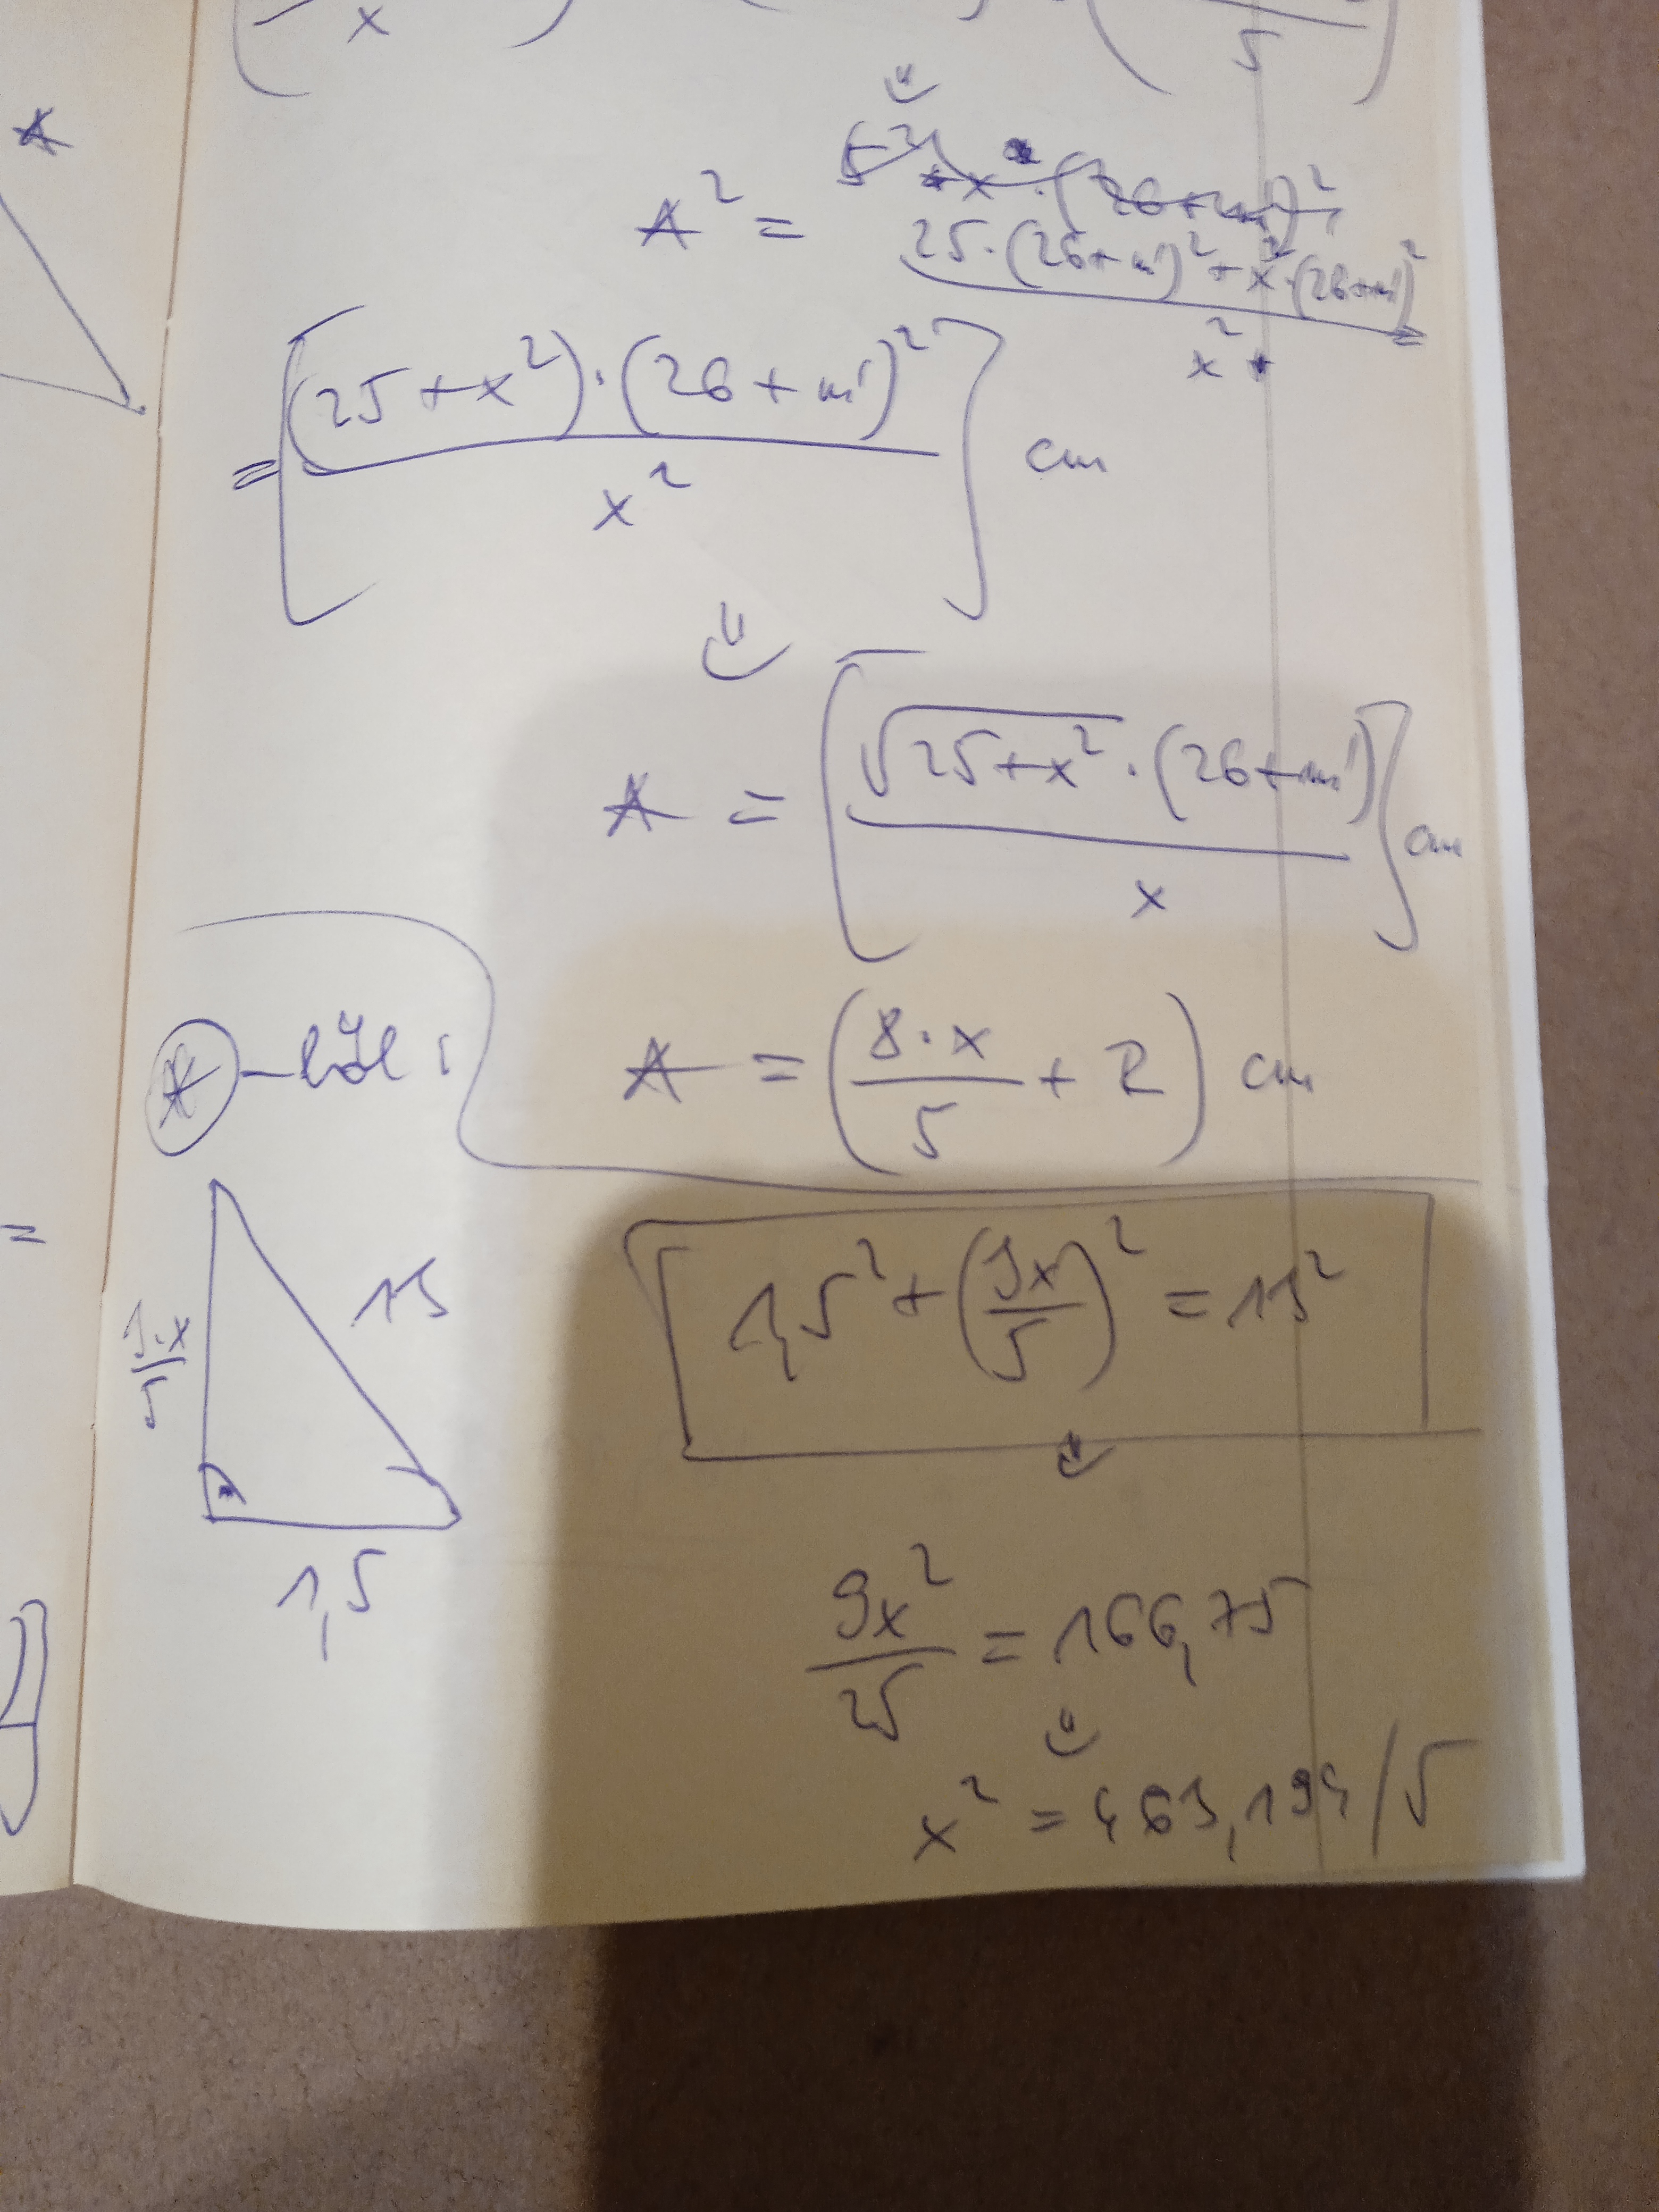 x
5
A
A² =
25·(26+m')²+x²·(26+m')²
x²
= [(25+x²)·(26+m')² / x²] cm
A = [√25+x² · (26+m') / x] cm
A = (8·x / 5 + R) cm
-ből:
3·x / 5
13
1,5
1,5² + (3x / 5)² = 13²
9x² / 25 = 166,75
x² = 463,194 /√
=